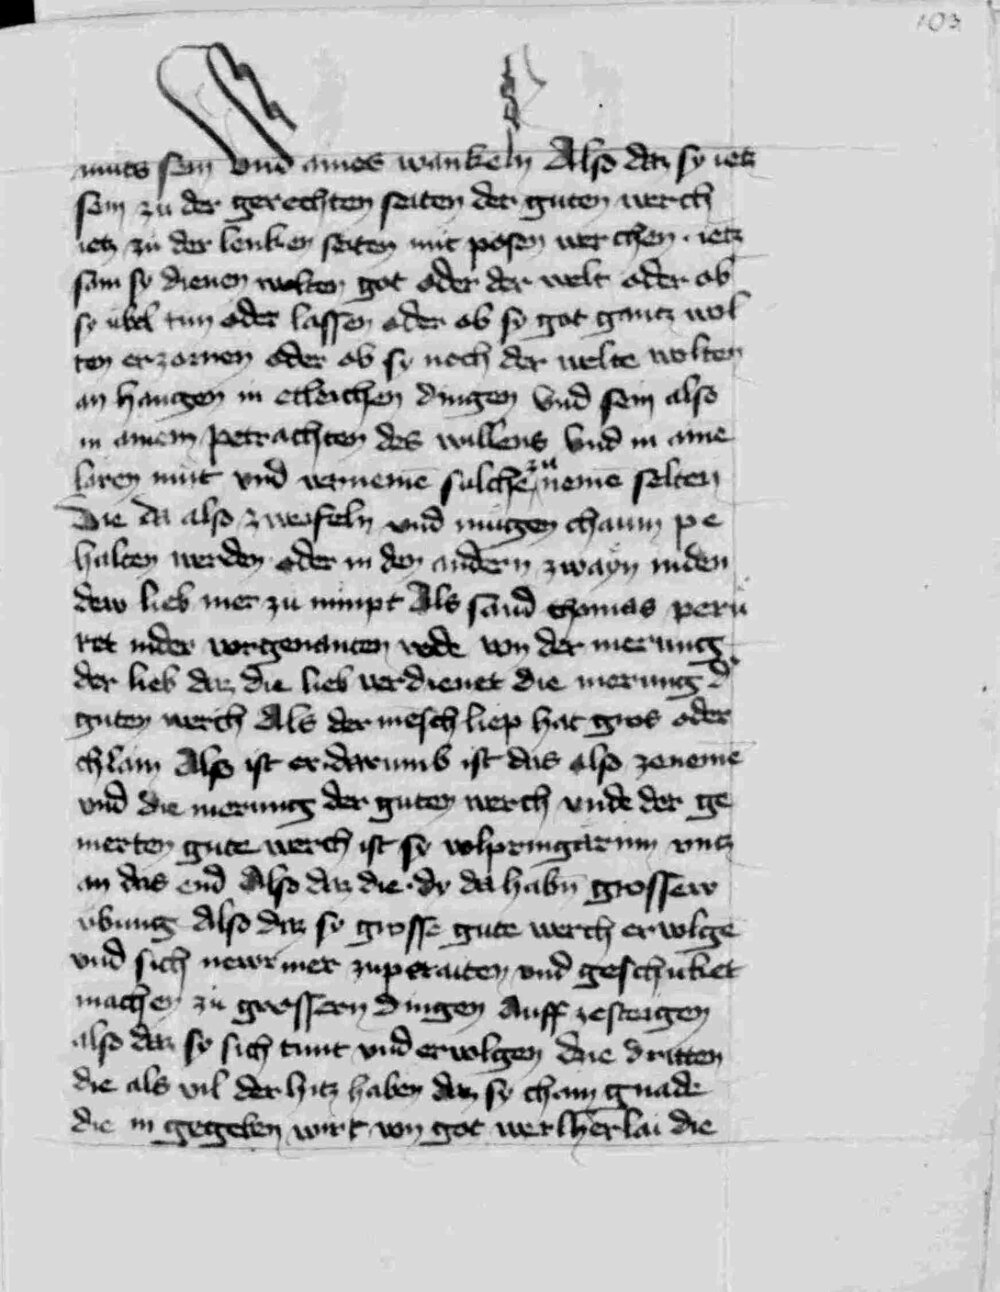 103
muts sein vnd aines wankeln Also daz sy ietz
sein zu der gerechten seiten der guten werch
ietz zu der lenken seiten mit posen werchen · ietz
sam sy dienen wolten got oder der welt oder ob
sy übel tun oder lassen oder ob sy got gantz wol
ten erzornen oder ob sy noch der welte wolten
an hangen in etleichen dingen Vnd sein also
in ainem petrachten des willens Vnd in aine
lären mut vnd vernemē solche zu nemē selten
Die da also zweifeln vnd mügen chaum pe
halten werden · oder in den andern zwayn inden
dew lieb mer zu nimpt Als sand thomas perü
ret in der vorgenanten rede von der merung
der lieb daz die lieb verdienet die merung d
guten werch Als der mēsch liep hat gros oder
chlain Also ist er darumb ist das also zenemē
vnd die merung der guten werch vnde der ge
merten gute werch ist sy volpringärinn vntz
an das end Also daz die · dy da habn grossew
übung Also daz sy grosse gute werch ervolgē
vnd sich newr mer zuperaiten vnd geschikket
machen zu grossern dingen Auff zesteigen
also daz sy sich tunt vnd ervolgen Die dritten
die als vil der hitz haben daz sy chain gnade
die in gegeben wirt von got welherlai die